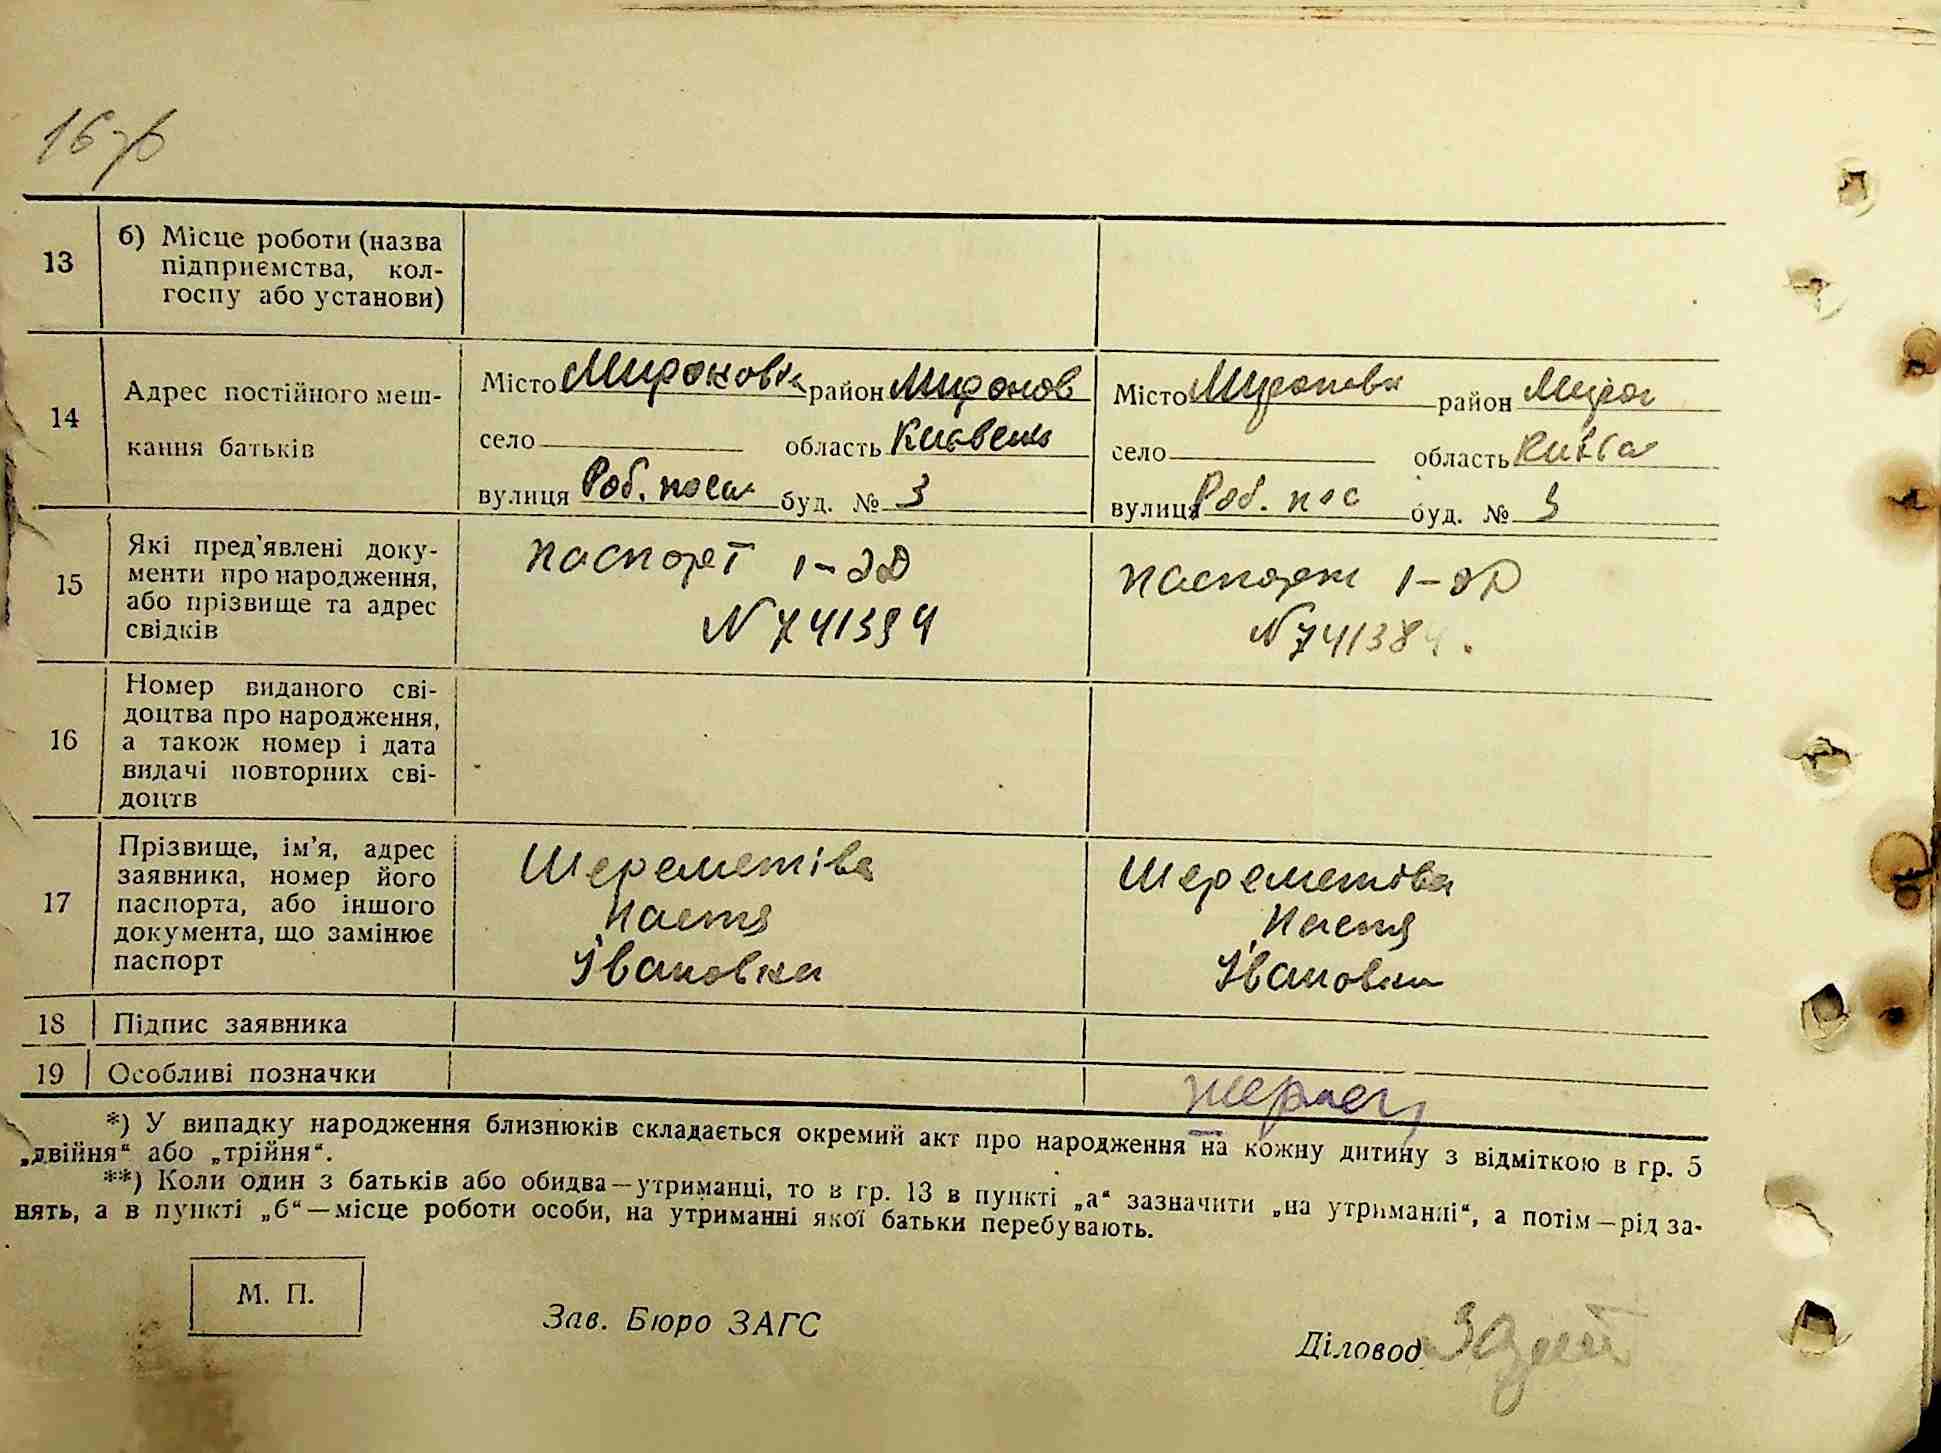 13 б) Місце роботи (назва
підприємства, кол-
госпу або установи)
14 Адрес постійного меш-
кання батьків
Місто Мироновка район Миронов
село область Киевськ
вулиця Роб. посел буд. № 3
Місто Миронівк район Мирон
село область
вулиця Роб. пос буд. № 3
15 Які пред'явлені доку-
менти про народження,
або прізвище та адрес
свідків
паспорт 1-ЭД
N 741394
паспорт 1-ЭД
N 741384.
16 Номер виданого сві-
доцтва про народження,
а також номер і дата
видачі повторних сві-
доцтв
17 Прізвище, ім'я, адрес
заявника, номер його
паспорта, або іншого
документа, що замінює
паспорт
Шереметіва
Настя
Івановна
Шереметова
Настя
Івановна
18 Підпис заявника
19 Особливі позначки
*) У випадку народження близнюків складається окремий акт про народження на кожну дитину з відміткою в гр. 5
„двійня“ або „трійня“.
**) Коли один з батьків або обидва—утриманці, то в гр. 13 в пункті „а“ зазначити „на утриманні“, а потім—рід за-
нять, а в пункті „б“—місце роботи особи, на утриманні якої батьки перебувають.
М. П.
Зав. Бюро ЗАГС
Діловод